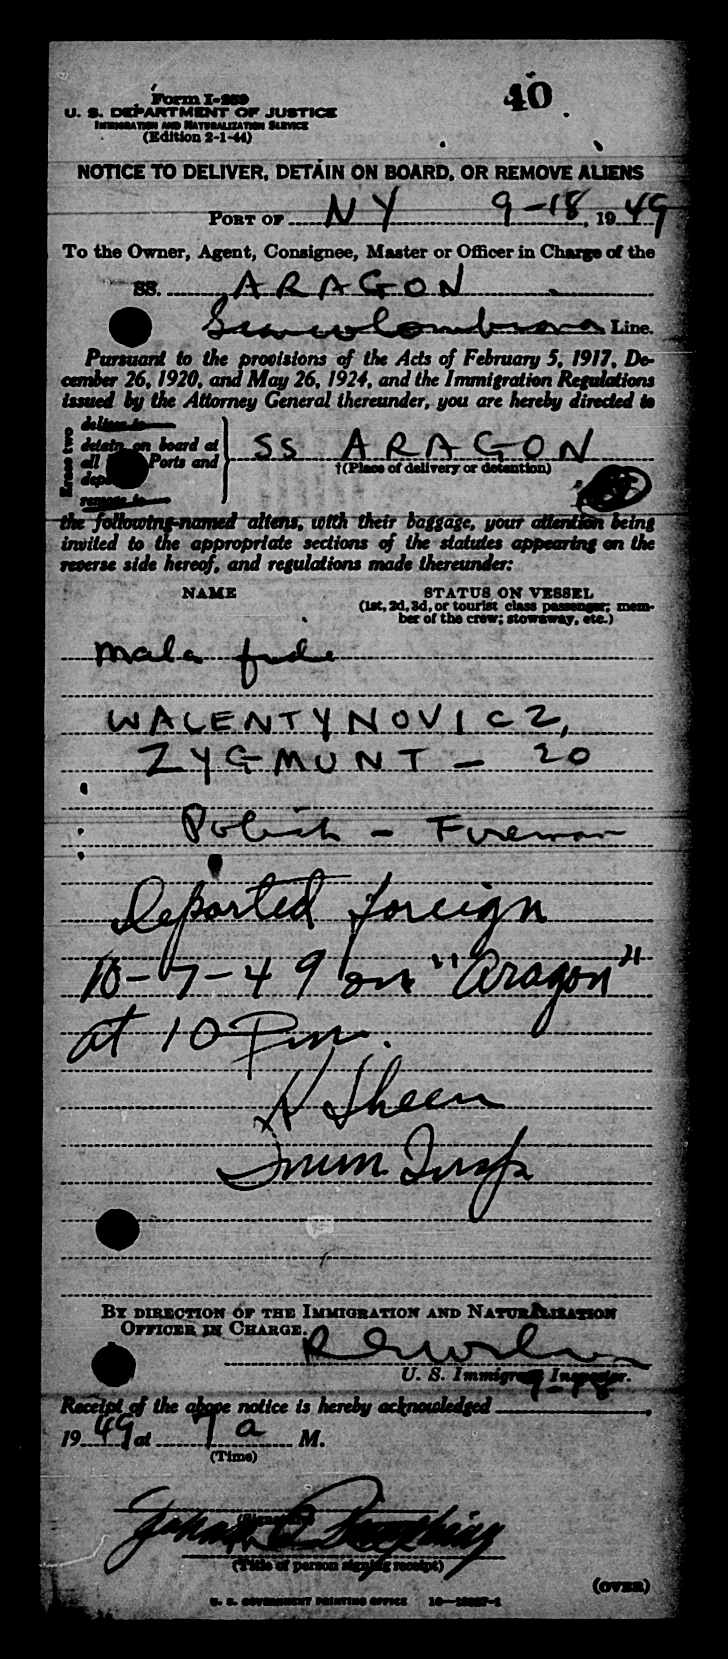 40
Form I-259
U. S. DEPARTMENT OF JUSTICE
IMMIGRATION AND NATURALIZATION SERVICE
(Edition 2-1-44)
NOTICE TO DELIVER, DETAIN ON BOARD, OR REMOVE ALIENS
PORT OF NY 9-18, 1949
To the Owner, Agent, Consignee, Master or Officer in Charge of the
SS. ARAGON
Line.
Pursuant to the provisions of the Acts of February 5, 1917, De-
cember 26, 1920, and May 26, 1924, and the Immigration Regulations
issued by the Attorney General thereunder, you are hereby directed to
Erase two
deliver to
detain on board at
all Ports and
remove to
SS ARAGON
†(Place of delivery or detention)
the following-named aliens, with their baggage, your attention being
invited to the appropriate sections of the statutes appearing on the
reverse side hereof, and regulations made thereunder:
NAME STATUS ON VESSEL
(1st, 2d, 3d, or tourist class passenger; mem-
ber of the crew; stowaway, etc.)
mala fide
WALENTYNOVICZ,
ZYGMUNT - 20
Polish - Fireman
Departed foreign
10-7-49 on "Aragon"
at 10 Pm.
H Sheen
Imm Insp
BY DIRECTION OF THE IMMIGRATION AND NATURALIZATION
OFFICER IN CHARGE.
U. S. Immigrant Inspector.
Receipt of the above notice is hereby acknowledged
1949 at 7 a M.
(Time)
(Signature)
(Title of person signing receipt)
(OVER)
U. S. GOVERNMENT PRINTING OFFICE